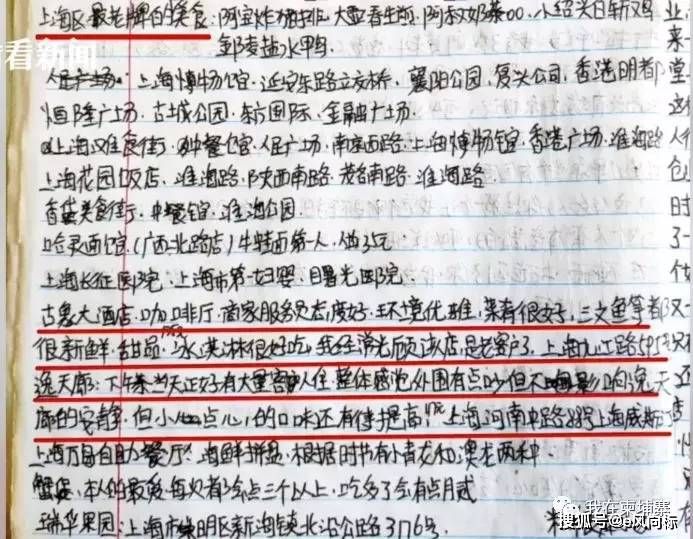 看看新闻
上海区最老牌的美食:阿宝炸猪排、大壶春生煎、阿叔奶茶00、小绍兴白斩鸡
盐水鸭
人民广场、上海博物馆、延安东路立交桥、襄阳公园、复兴公司、香港明都
恒隆广场、古城公园、东方国际、金融广场
上海美食街、中餐馆、人民广场、南京西路、上海博物馆、香港广场、淮海路
上海花园饭店、淮海路、陕西南路、茂名南路、淮海路
美食街、中餐馆、淮海公园
哈灵面馆(广西北路店)牛特面第一人、做
上海长征医院、上海市第一妇婴、曙光医院
古象大酒店、咖啡厅、商家服务员态度好、环境优雅、菜肴很好、三文鱼等都
很新鲜、甜品、冰淇淋很好吃、我经常光顾该店、是老客户了、上海九江路595
逸天廊:下午茶当天正好有大量客人住、整体感觉外围有点吵但不影响逸天
廊的安静、但小点心的口味还有待提高、上海河南中路 上海威斯
上海万自助餐厅:海鲜拼盘、根据时节有小青龙和澳龙两种
蟹 本人的最爱每次都会点三个以上、吃多了会有点月贰
瑞华果园:上海市崇明区新海镇北沿公路3176号
业
来
堂
人
仓
时
了
我在柬埔寨
搜狐号@b风向标